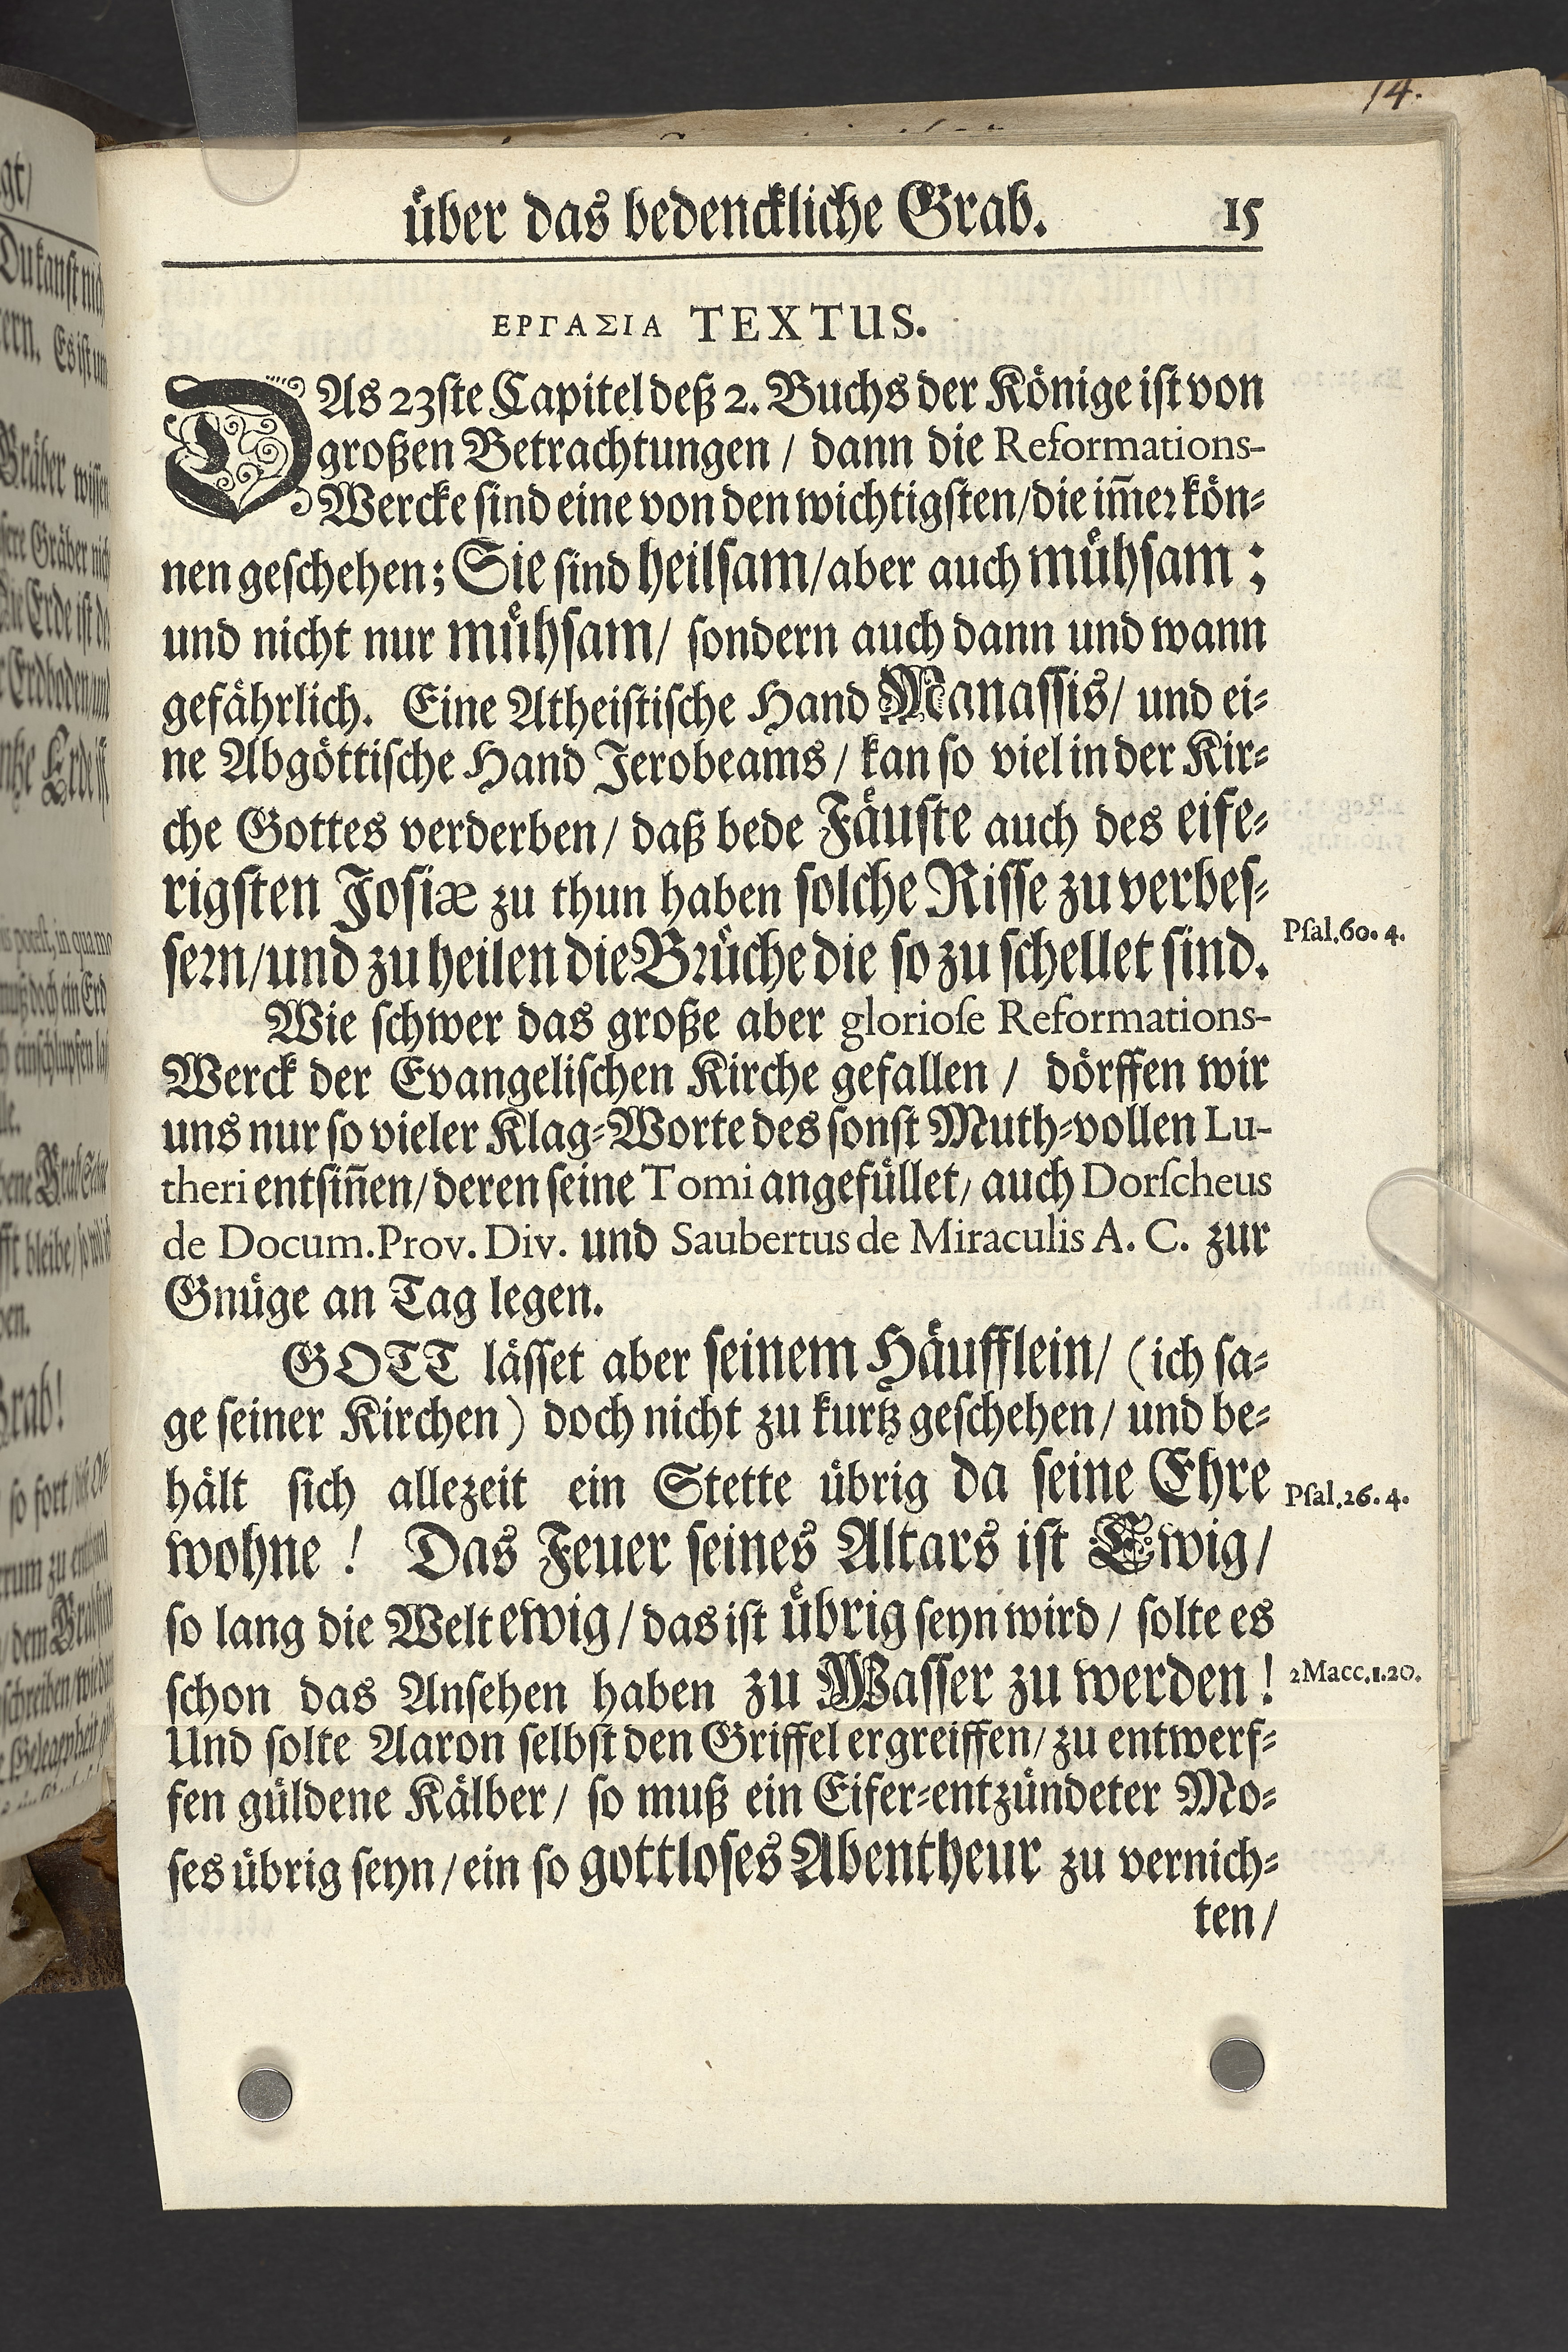 14.
über das bedenckliche Grab. 15
ΕΡΓΑΣΙΑ TEXTUS.
DAs 23ſte Capitel deß 2. Buchs der Könige iſt von
großen Betrachtungen / dann die Reformations-
Wercke ſind eine von den wichtigſten/die im̃er kön-
nen geſchehen; Sie ſind heilſam/aber auch muͤhſam;
und nicht nur muͤhſam/ ſondern auch dann und wann
gefährlich. Eine Atheiſtiſche Hand Manaſſis/ und ei-
ne Abgöttiſche Hand Jerobeams / kan ſo viel in der Kir-
che Gottes verderben/ daß bede Faͤuſte auch des eife-
rigſten Joſiæ zu thun haben ſolche Riſſe zu verbeſ-
ſern/und zu heilen die Bruͤche die ſo zu ſchellet ſind.
Pſal. 60. 4.
Wie ſchwer das große aber glorioſe Reformations-
Werck der Evangeliſchen Kirche gefallen / dörffen wir
uns nur ſo vieler Klag-Worte des ſonſt Muth-vollen Lu-
theri entſiñen/ deren ſeine Tomi angefüllet, auch Dorſcheus
de Docum. Prov. Div. und Saubertus de Miraculis A. C. zur
Gnüge an Tag legen.
GOTT läſſet aber ſeinem Haͤufflein/ (ich ſa-
ge ſeiner Kirchen) doch nicht zu kurtz geſchehen/ und be-
hält ſich allezeit ein Stette übrig da ſeine Ehre
Pſal. 26. 4.
wohne! Das Feuer ſeines Altars iſt Ewig/
ſo lang die Welt ewig/ das iſt uͤbrig ſeyn wird/ ſolte es
ſchon das Anſehen haben zu Waſſer zu werden!
2 Macc. 1. 20.
Und ſolte Aaron ſelbſt den Griffel ergreiffen/ zu entwerf-
fen güldene Kälber/ ſo muß ein Eifer-entzündeter Mo-
ſes übrig ſeyn/ ein ſo gottloſes Abentheur zu vernich-
ten/